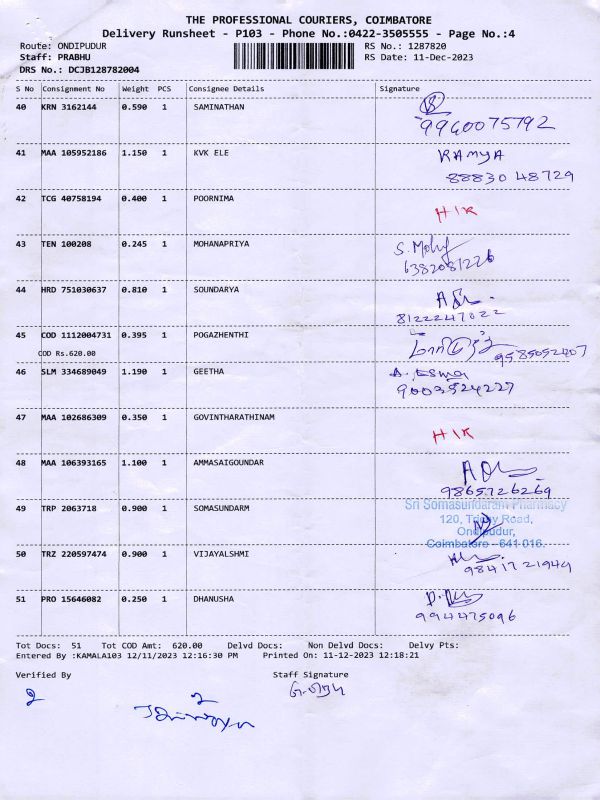 THE PROFESSIONAL COURIERS, COIMBATORE
Delivery Runsheet - P103 - Phone No.:0422-3505555 - Page No.:4
Route: ONDIPUDUR RS No.: 1287820
Staff: PRABHU RS Date: 11-Dec-2023
DRS No.: DCJB128782004
S No Consignment No Weight PCS Consignee Details Signature
40 KRN 3162144 0.590 1 SAMINATHAN
9940075792
41 MAA 105952186 1.150 1 KVK ELE RAMYA
88830 48729
42 TCG 40758194 0.400 1 POORNIMA
H/R
43 TEN 100208 0.245 1 MOHANAPRIYA
6382081226
44 HRD 751030637 0.810 1 SOUNDARYA
8122247022
45 COD 1112004731 0.395 1 POGAZHENTHI
COD Rs.620.00 9585052407
46 SLM 334689049 1.190 1 GEETHA
9003524227
47 MAA 102686309 0.350 1 GOVINTHARATHINAM
H/R
48 MAA 106393165 1.100 1 AMMASAIGOUNDAR
9865726269
49 TRP 2063718 0.900 1 SOMASUNDARM
Sri Somasundaram Pharmacy
120, Trichy Road,
Ondipudur,
Coimbatore - 641 016.
50 TRZ 220597474 0.900 1 VIJAYALSHMI
9841721949
51 PRO 15646082 0.250 1 DHANUSHA
994475096
Tot Docs: 51 Tot COD Amt: 620.00 Delvd Docs: Non Delvd Docs: Delvy Pts:
Entered By :KAMALA103 12/11/2023 12:16:30 PM Printed On: 11-12-2023 12:18:21
Verified By Staff Signature